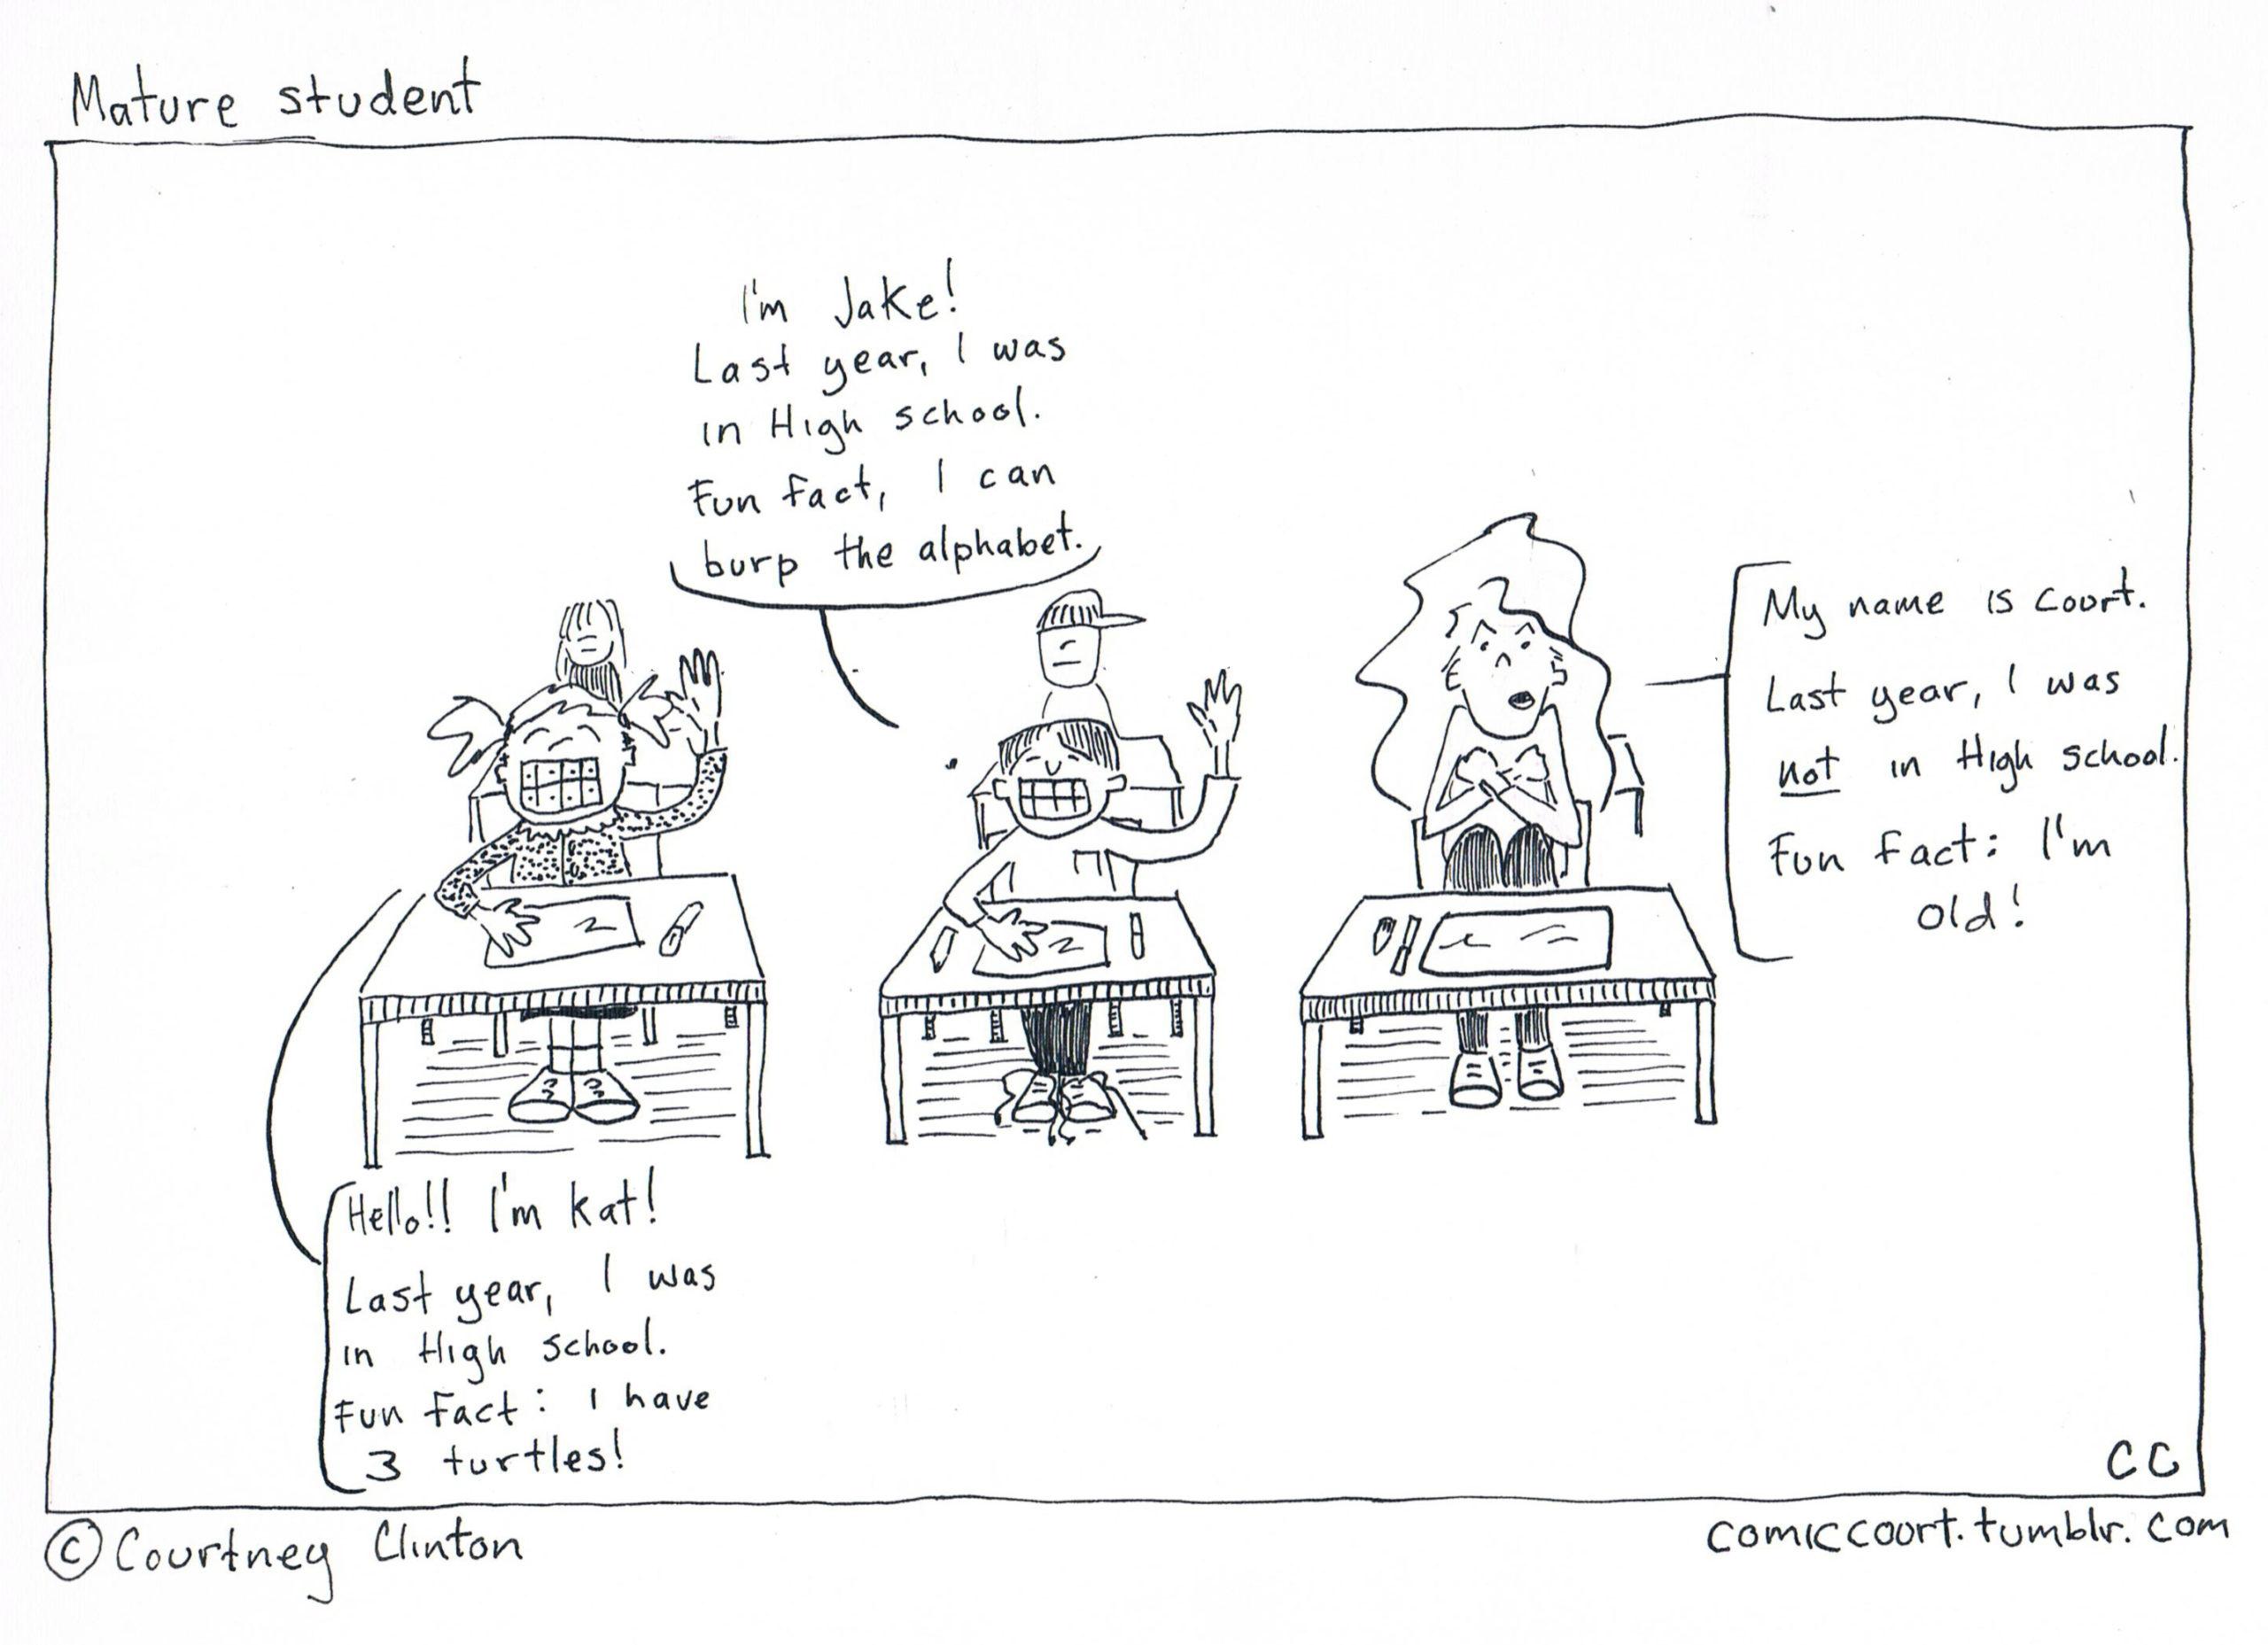 Mature student
Hello!! I'm Kat!
Last year, I was
in High school.
Fun fact: I have
3 turtles!
I'm Jake!
Last year, I was
in High school.
Fun fact, I can
burp the alphabet.
My name is Court.
Last year, I was
not in High school.
Fun fact: I'm
old!
CC
© Courtney Clinton
comiccourt.tumblr.com